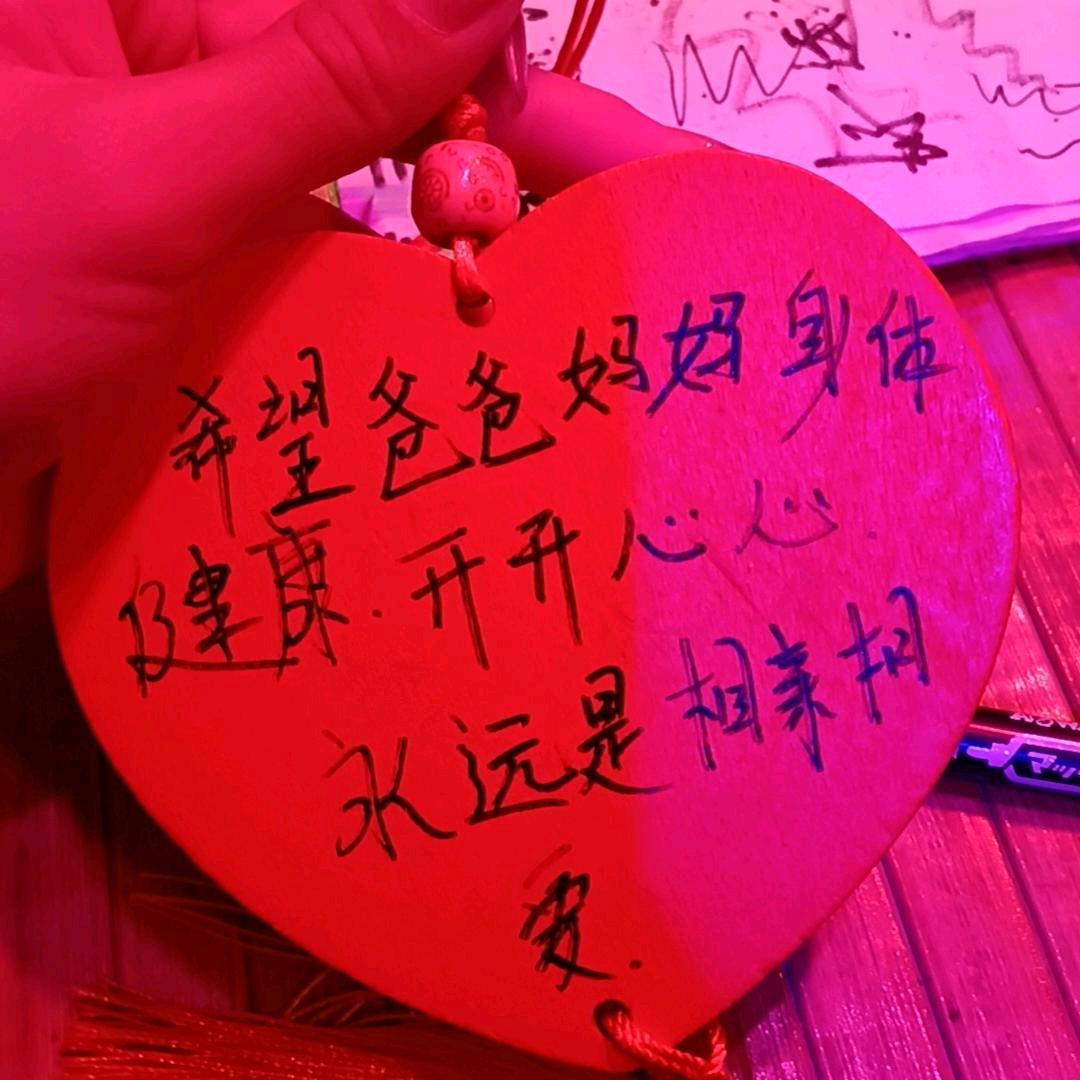 希望爸爸妈妈身体
健康.开开心心.
永远是相亲相
爱.
マッ